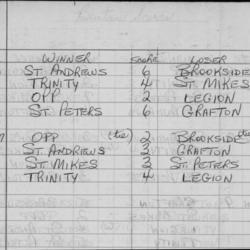 WINNER SCORE LOSER
ST. ANDREWS 6 BROOKSIDE
TRINITY 4 ST MIKES
OPP 2 LEGION
ST. PETERS 6 GRAFTON
OPP (tie) 2 BROOKSIDE (tie
ST. ANDREWS 3 GRAFTON
ST. MIKES 3 ST. PETERS
TRINITY 4 LEGION